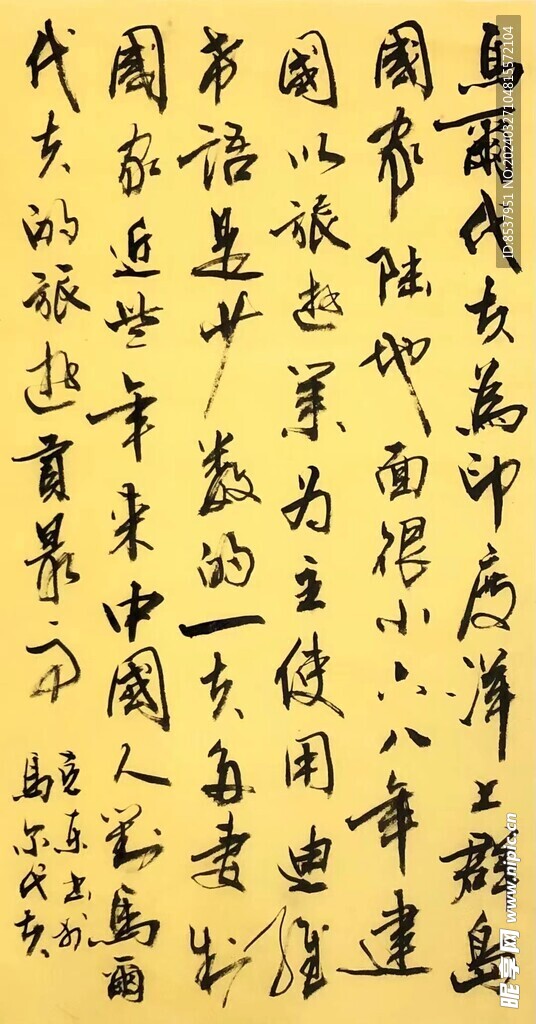 馬爾代夫為印度洋上群島
國家陆地面很小六八年建
國以旅遊業为主使用迪維
希语是少数的一夫多妻制
國家近些年来中國人對馬爾
代夫的旅遊最
东书於
馬尔代夫
ID:8537951 NO:20240327104815572104
昵享网 www.nipic.cn